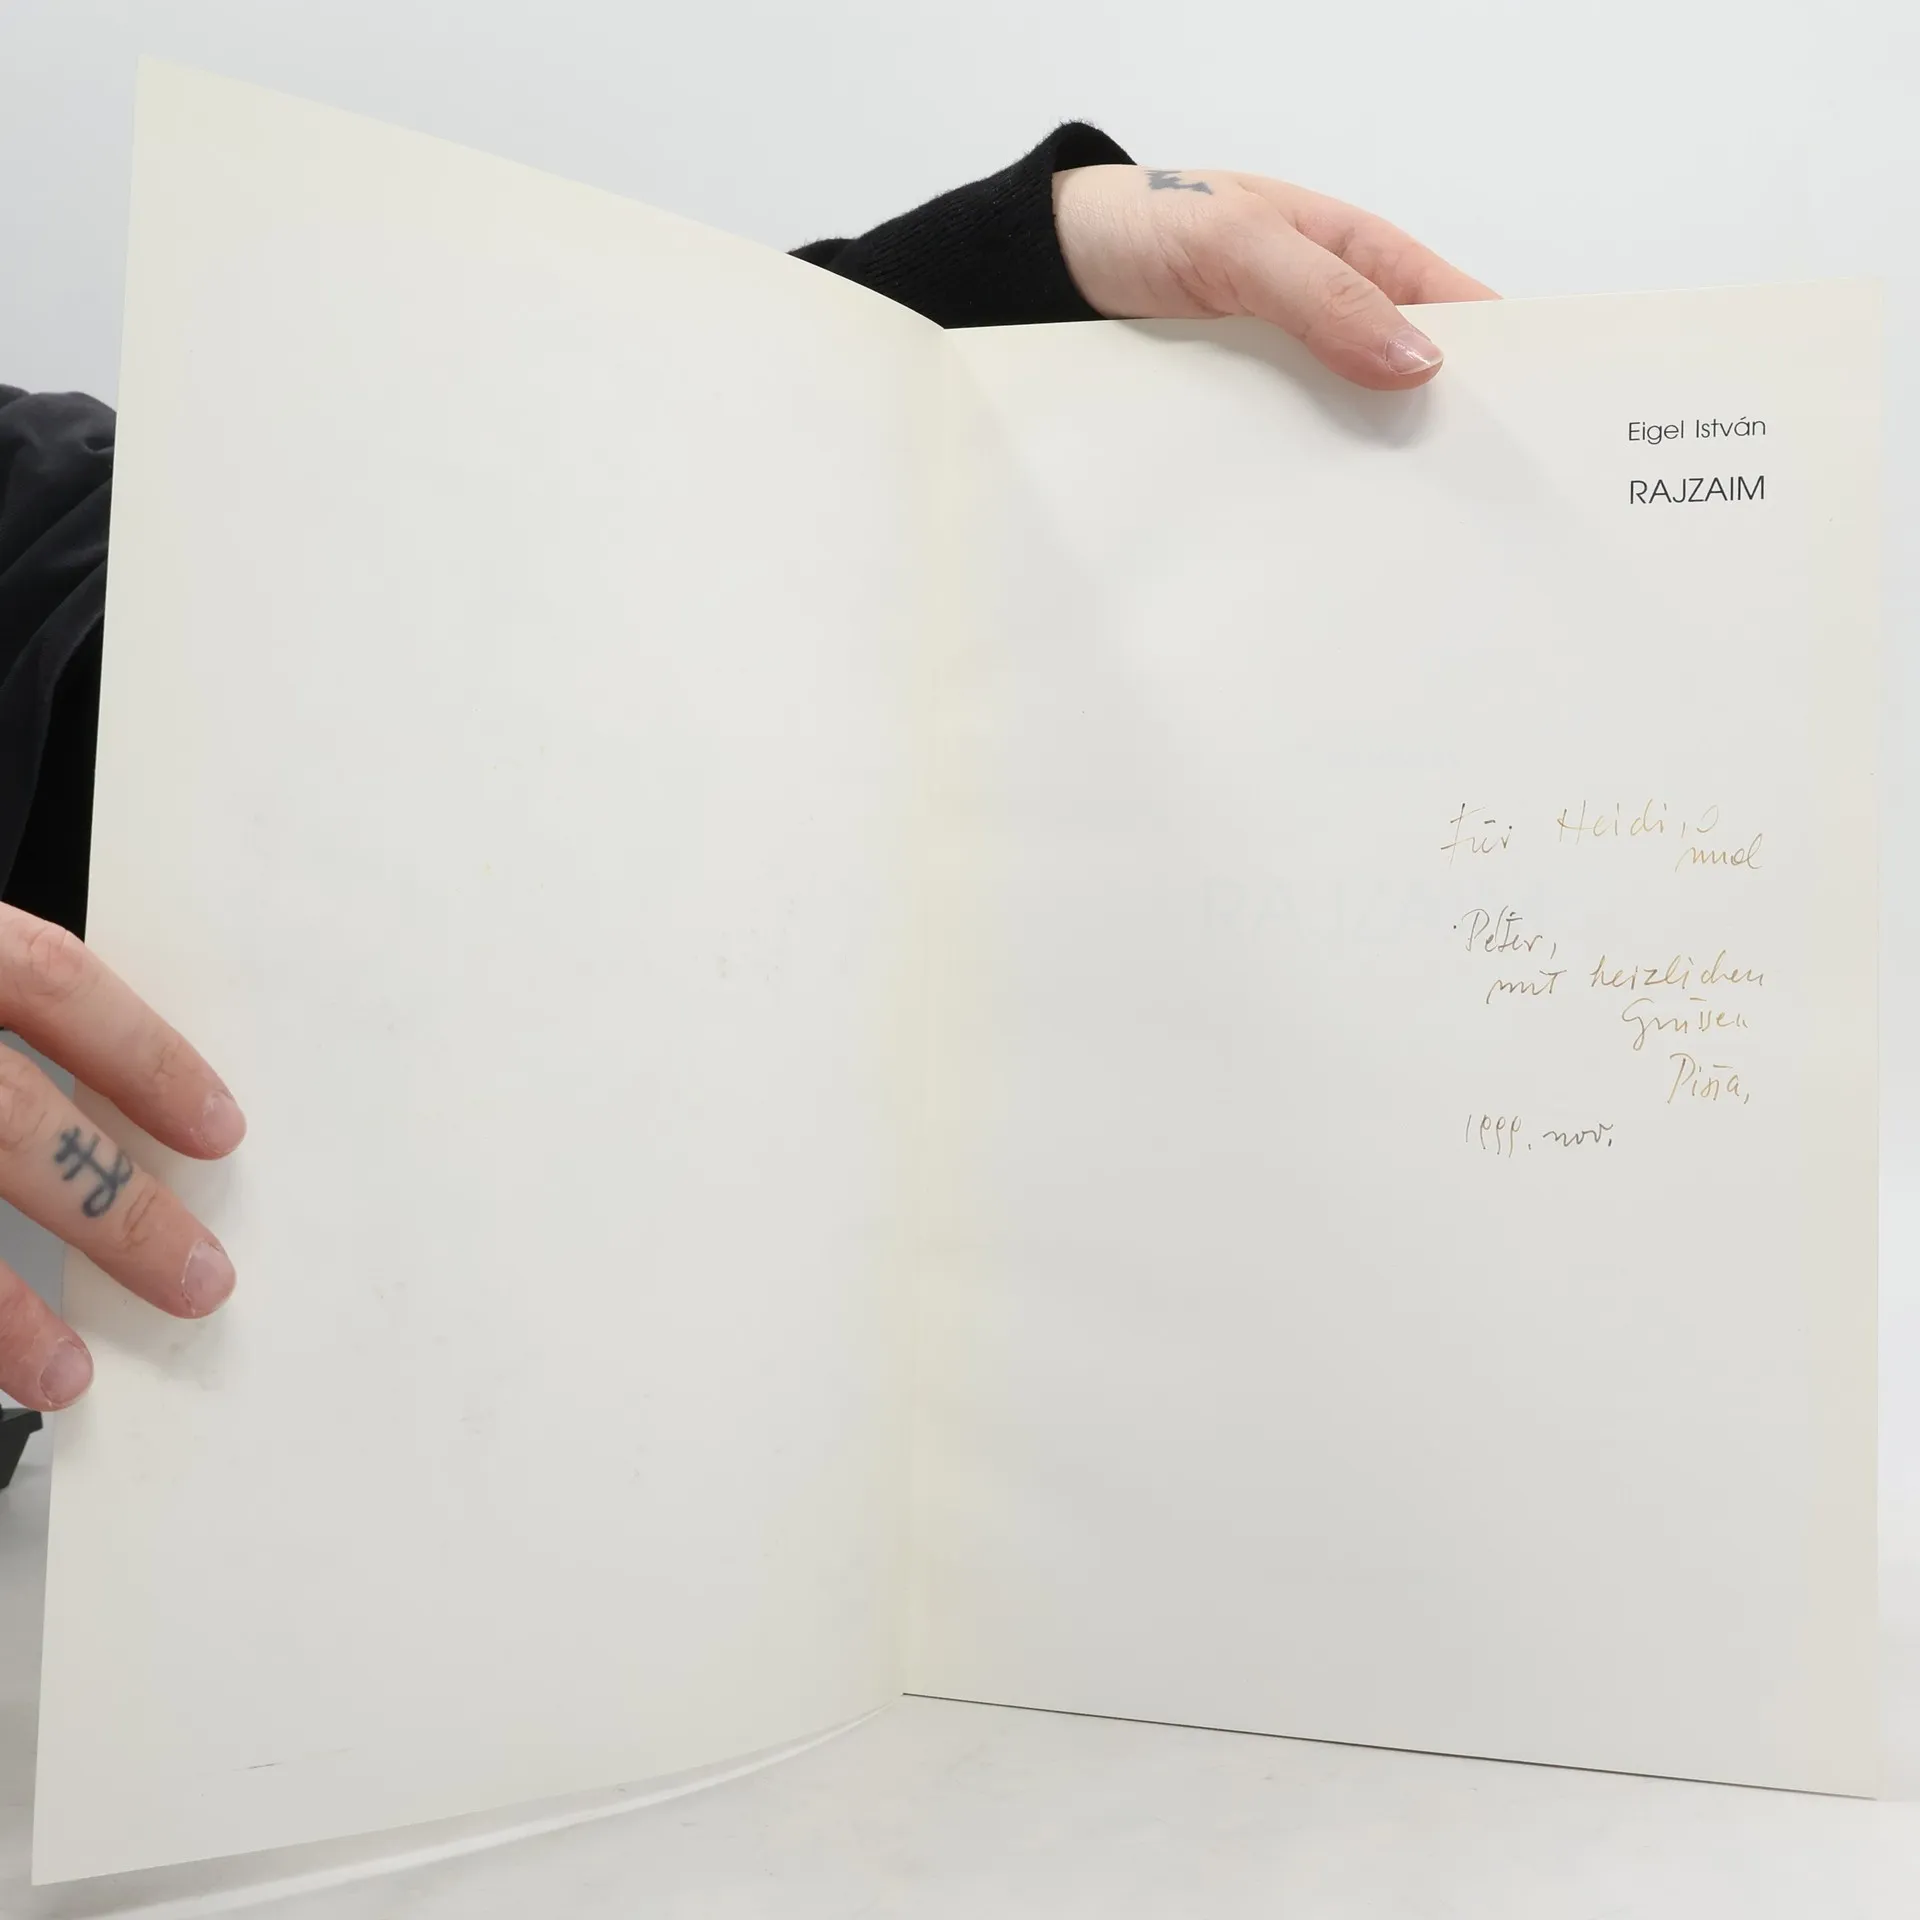 Eigel István
RAJZAIM
Für Heidi,
und
Peter,
mit herzlichen
Grüssen
Pista,
1999. nov.